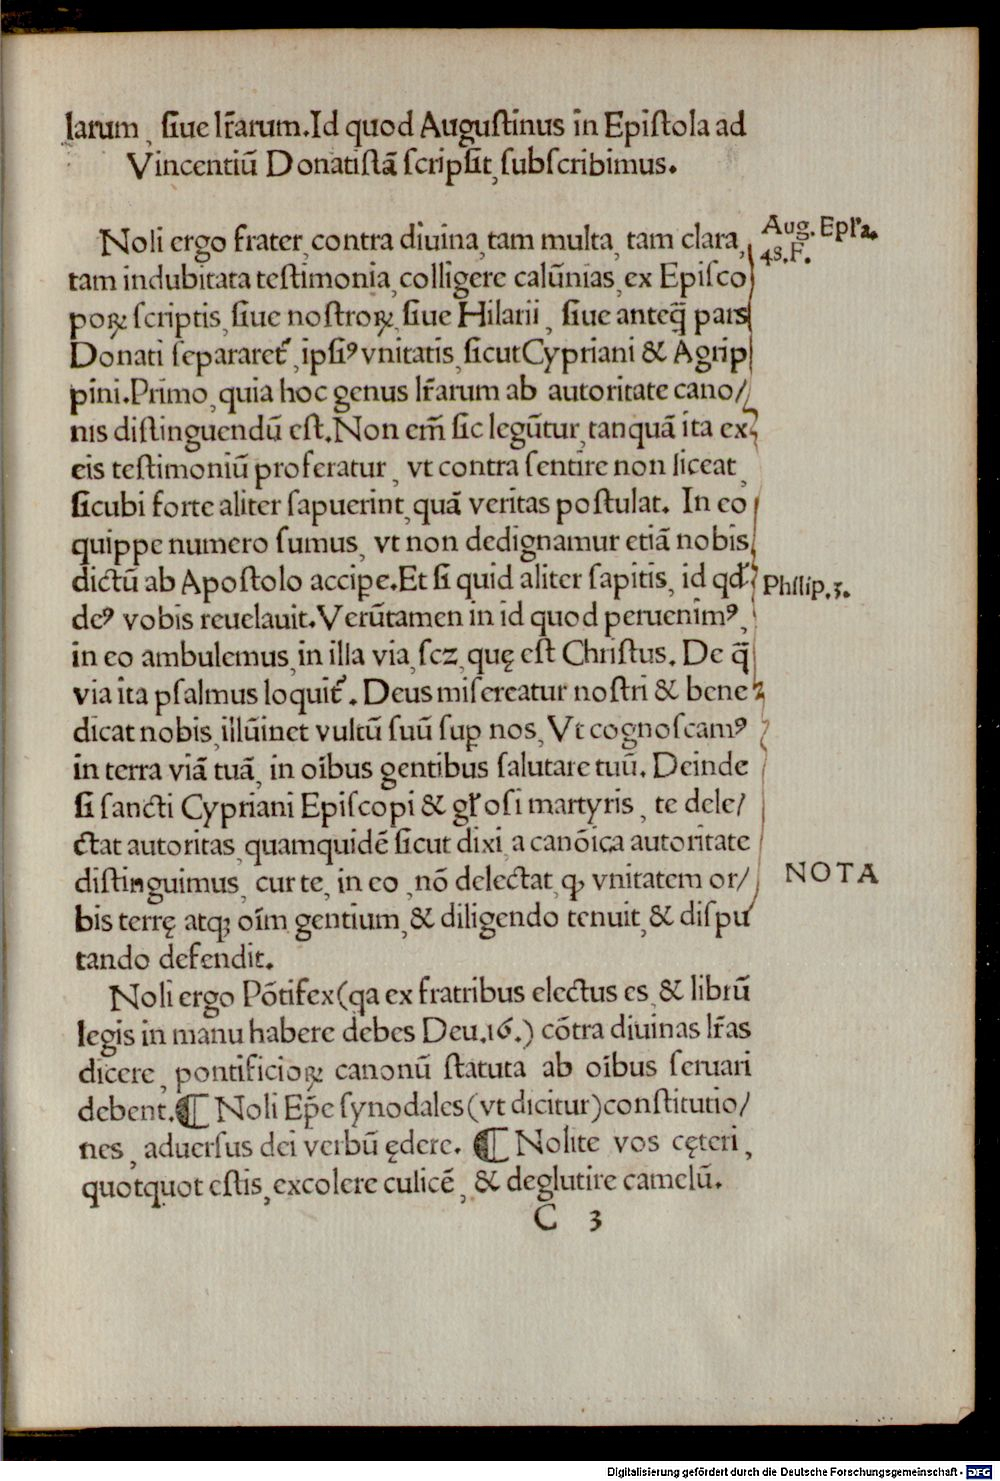 larum, siue lr̃arum. Id quod Augustinus in Epistola ad
Vincentiũ Donatistã scripsit, subscribimus.
Noli ergo frater, contra diuina, tam multa, tam clara,
Aug. Epl'a.
48. F.
tam indubitata testimonia, colligere calũnias, ex Episco
poꝝ scriptis, siue nostroꝝ, siue Hilarii, siue anteq̃ pars
Donati separaret᷑, ipsiꝰ vnitatis, sicut Cypriani & Agrip
pini. Primo, quia hoc genus lr̃arum ab autoritate cano/
nis distinguendũ est. Non em̃ sic legũtur, tanquã ita ex
eis testimoniũ proferatur, vt contra sentire non liceat,
sicubi forte aliter sapuerint, quã veritas postulat. In eo
quippe numero sumus, vt non dedignamur etiã nobis
dictũ ab Apostolo accipe. Et si quid aliter sapitis, id qđ
Philip. 3.
deꝰ vobis reuelauit. Verũtamen in id quod peruenimꝰ,
in eo ambulemus, in illa via, scz, quę est Christus. De q̃
via ita psalmus loquit᷑. Deus misereatur nostri & bene
dicat nobis, illũinet vultũ suũ suꝑ nos, Vt cognoscamꝰ
in terra viã tuã, in oĩbus gentibus salutare tuũ. Deinde
si sancti Cypriani Episcopi & gl'osi martyris, te dele/
ctat autoritas, quamquidẽ sicut dixi, a canõica autoritate
distinguimus, cur te, in eo, nõ delectat, ꝙ vnitatem or/
NOTA
bis terrę atqꝫ oĩm gentium, & diligendo tenuit, & dispu
tando defendit.
Noli ergo Põtifex (qa ex fratribus electus es, & librũ
legis in manu habere debes Deu. 16.) cõtra diuinas lr̃as
dicere, pontificioꝝ canonũ statuta ab oĩbus seruari
debent. ¶ Noli Ep̃e synodales (vt dicitur) constitutio/
nes, aduersus dei verbũ ędere. ¶ Nolite vos cęteri,
quotquot estis, excolere culicẽ, & deglutire camelũ.
C 3
Digitalisierung gefördert durch die Deutsche Forschungsgemeinschaft - DFG